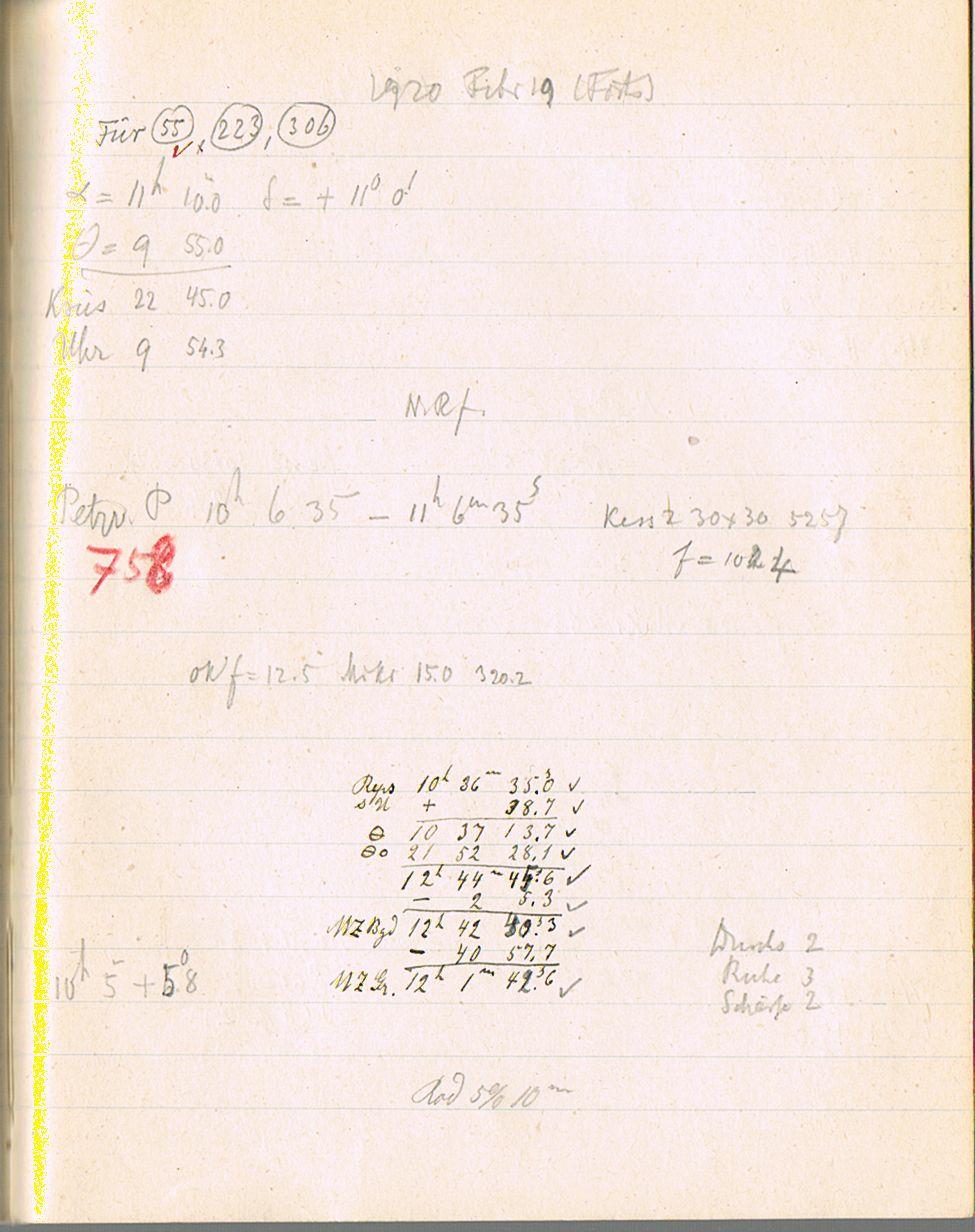 1920 Febr 19 (Foto)
Für 55, 223, 306
α = 11h 10.0 δ = + 11° 0'
θ = 9 55.0
Kreis 22 45.0
Uhr 9 54.3
N.R.f.
Petzv. P 10h 6 35 – 11h 6m 35s Kesst 30x30 5257
758 f = 102.4
okf = 12.5 Mikr 15.0 320.2
Reps 10h 36m 35.0s ✓
+ 38.7 ✓
θ 10 37 13.7 ✓
θ0 21 52 28.1 ✓
12h 44m 45.6s ✓
– 2 5.3 ✓
MZ Bgd 12h 42 40.3s ✓
– 40 57.7
MZ Gr. 12h 1m 42.6s ✓
Durchs 2
10h 5 + 5°.8 Ruhe 3
Schärfe 2
Rod 5% 10m